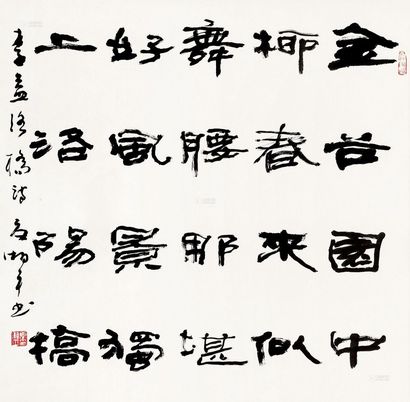 金谷園中
柳春來似
舞腰那堪
好風景獨
上洛陽橋
李益洛橋詩